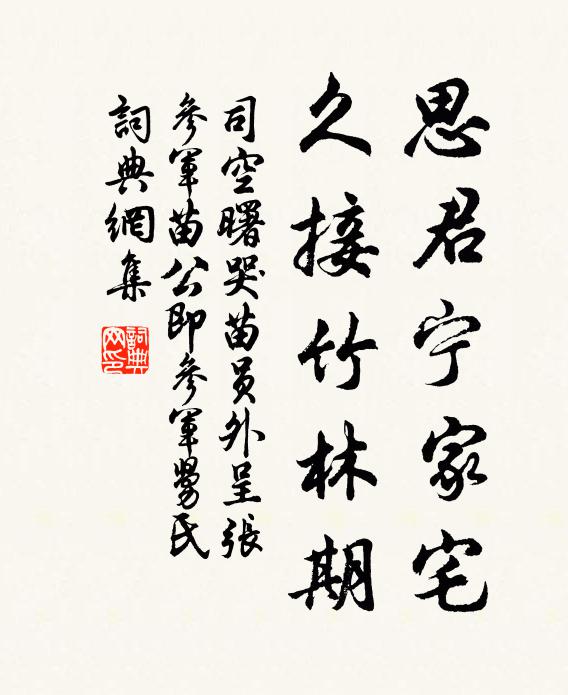 思君宁家宅
久接竹林期
司空曙哭苗员外呈張
參軍苗公即參軍舅氏
詞典網集
詞典网印